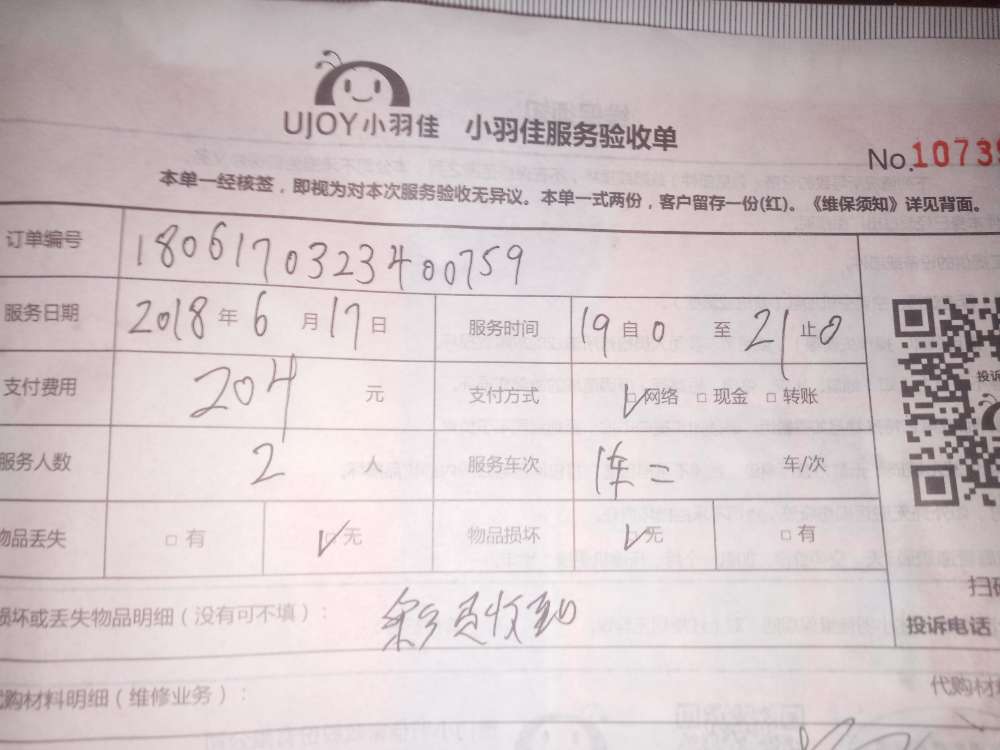 UJOY小羽佳 小羽佳服务验收单
No.10739
本单一经核签，即视为对本次服务验收无异议。本单一式两份，客户留存一份(红)。《维保须知》详见背面。
订单编号 1806170323400759
服务日期 2018 年 6 月 17 日 服务时间 19 自 0 至 21 止 0
支付费用 204 元 支付方式 □网络 □ 现金 □ 转账
服务人数 2 人 服务车次 车/次
物品丢失 □ 有 □ 无 物品损坏 □ 无 □ 有
损坏或丢失物品明细（没有可不填）： 收到
代购材料明细（维修业务）： 代购材
投诉
扫
投诉电话